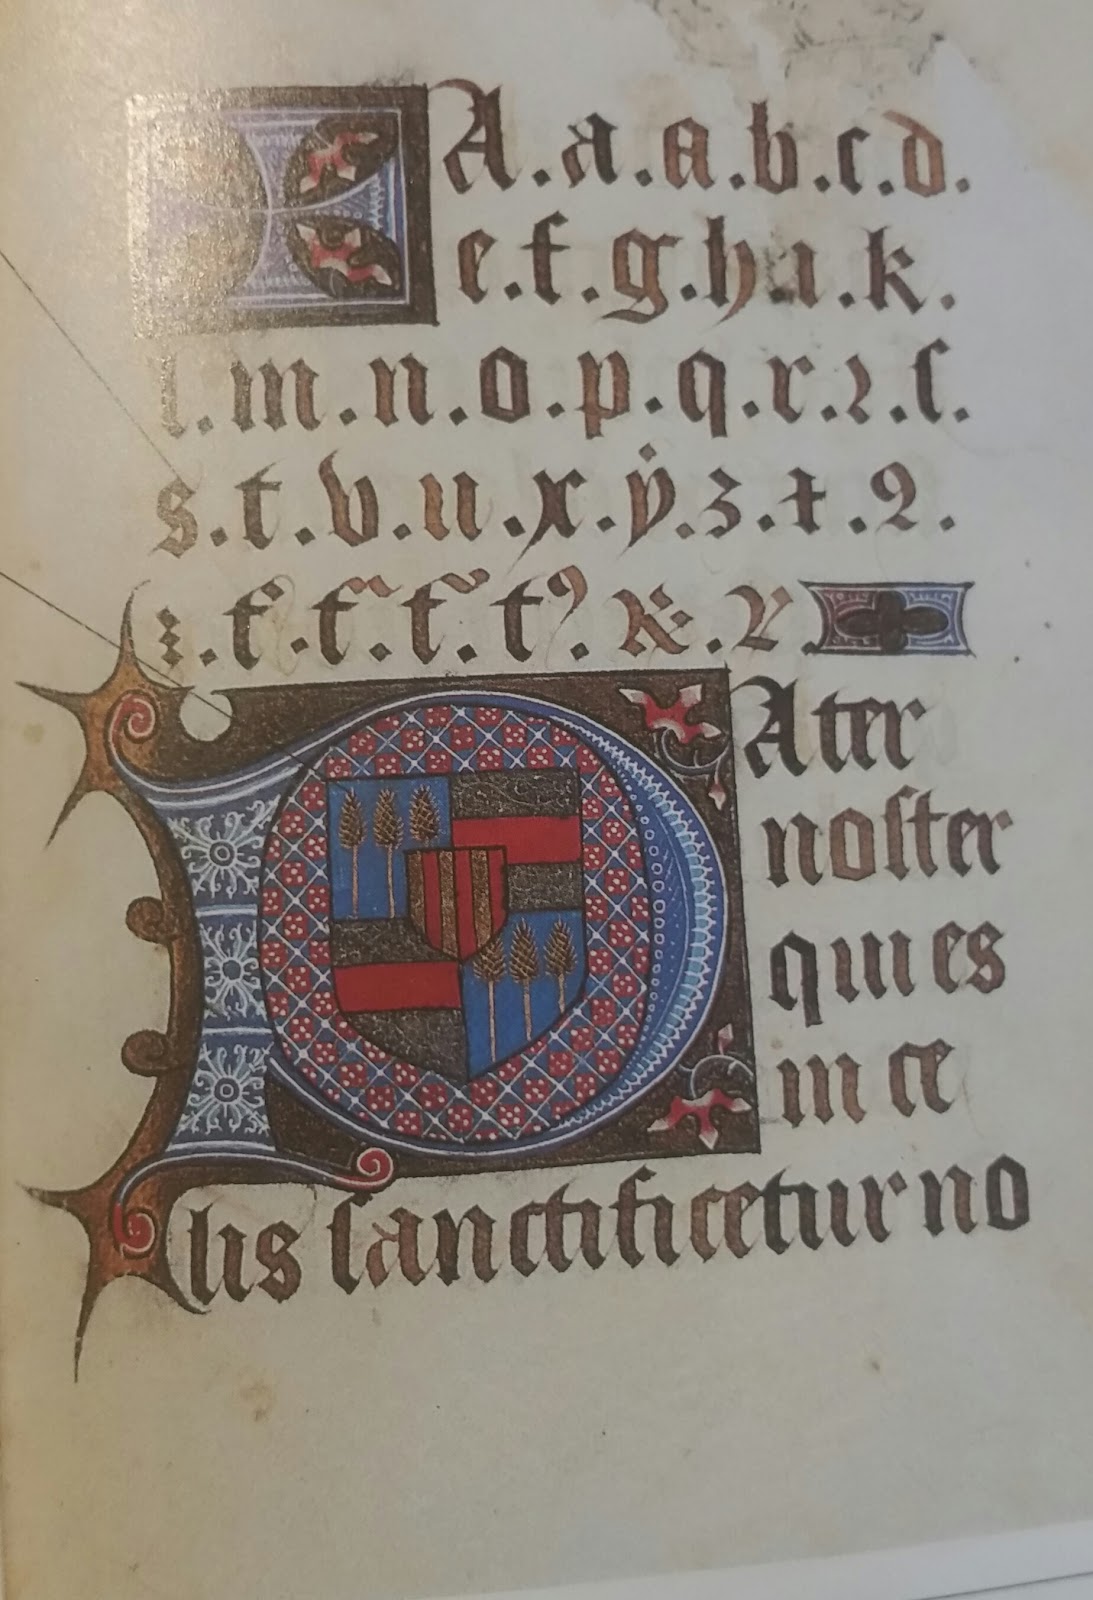 A.a.a.b.c.d.
e.f.g.h.ı.k.
l.m.n.o.p.q.r.ꝛ.ſ.
s.t.v.u.x.ẏ.z.
PAter
noſter
qui es
in ce
lis ſanctificetur no